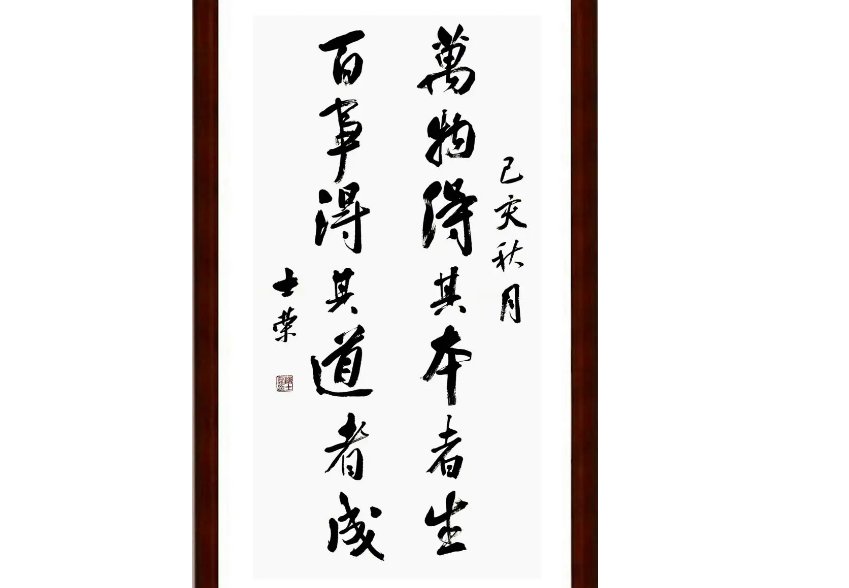 己亥秋月
萬物得其本者生
百事得其道者成
士榮